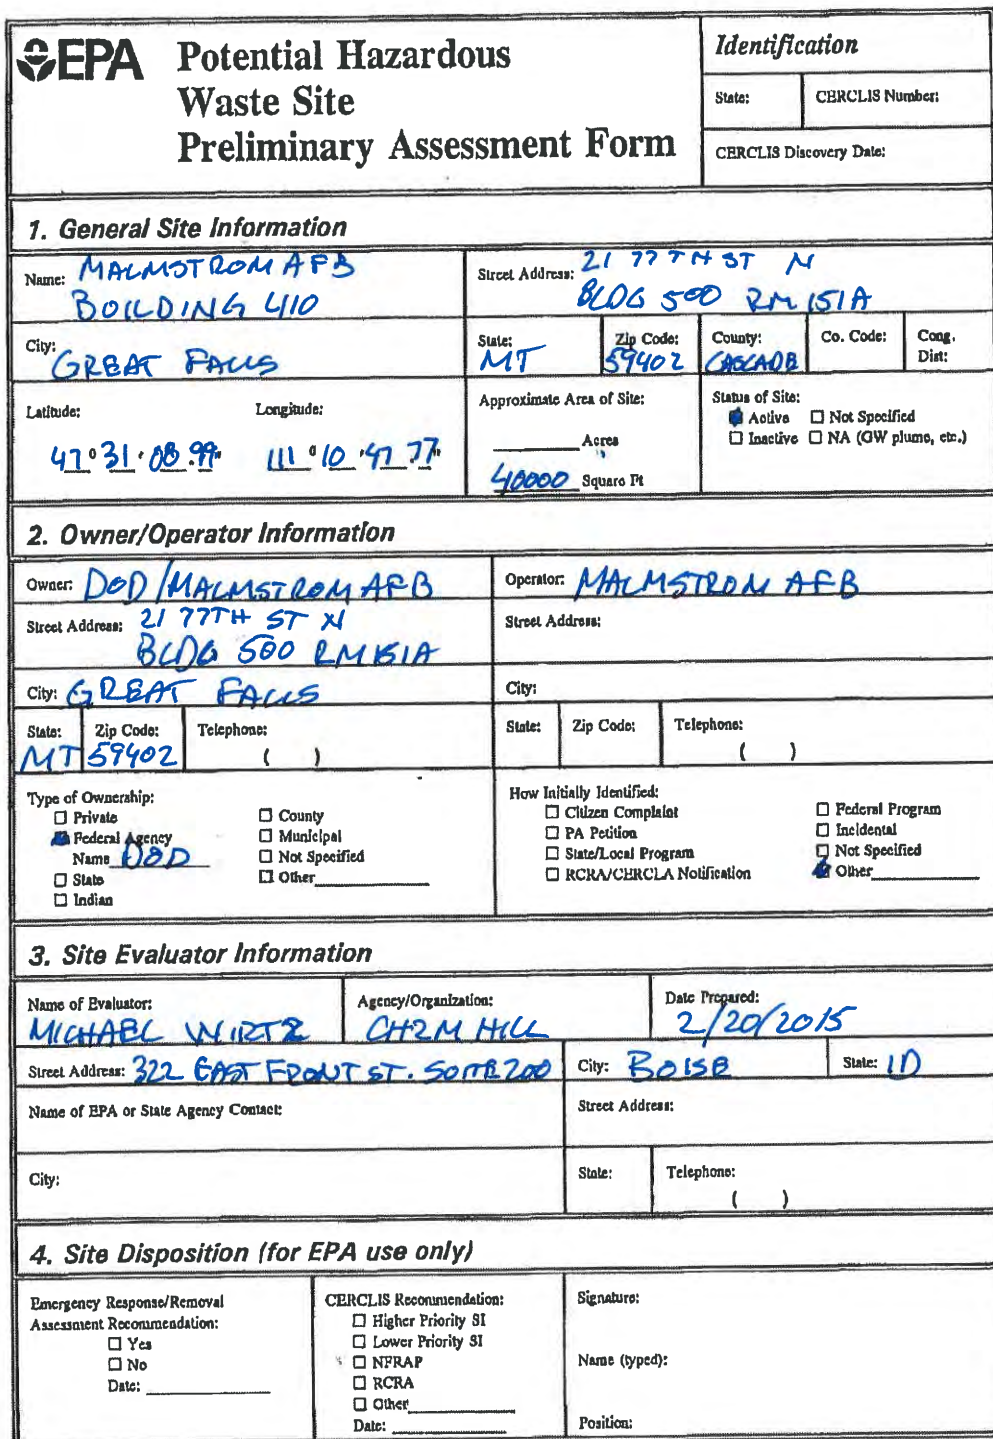 EPA Potential Hazardous
Waste Site
Preliminary Assessment Form
Identification
State: CERCLIS Number:
CERCLIS Discovery Date:
1. General Site Information
Name: MALMSTROM AFB
BUILDING 410
Street Address: 21 77TH ST N
BLDG 500 RM 151A
City: GREAT FALLS
State: MT
Zip Code: 59402
County: CASCADE
Co. Code:
Cong. Dist:
Latitude: 47° 31' 08.99"
Longitude: 111° 10' 47.77"
Approximate Area of Site:
Acres
40000 Square Ft
Status of Site:
Active Not Specified
Inactive NA (GW plume, etc.)
2. Owner/Operator Information
Owner: DOD/MALMSTROM AFB
Operator: MALMSTROM AFB
Street Address: 21 77TH ST N
BLDG 500 RM 151A
Street Address:
City: GREAT FALLS
City:
State: MT
Zip Code: 59402
Telephone: ( )
State:
Zip Code:
Telephone: ( )
Type of Ownership:
Private
Federal Agency
Name DOD
State
Indian
County
Municipal
Not Specified
Other
How Initially Identified:
Citizen Complaint
PA Petition
State/Local Program
RCRA/CERCLA Notification
Federal Program
Incidental
Not Specified
Other
3. Site Evaluator Information
Name of Evaluator:
MICHAEL WIRTZ
Agency/Organization:
CH2M HILL
Date Prepared:
2/20/2015
Street Address: 322 EAST FRONT ST. SUITE 200
City: BOISE
State: ID
Name of EPA or State Agency Contact:
Street Address:
City:
State:
Telephone: ( )
4. Site Disposition (for EPA use only)
Emergency Response/Removal
Assessment Recommendation:
Yes
No
Date:
CERCLIS Recommendation:
Higher Priority SI
Lower Priority SI
NFRAP
RCRA
Other
Date:
Signature:
Name (typed):
Position: